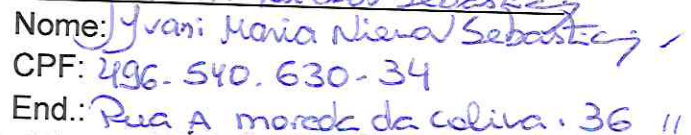 Nome: Yvani Maria Niena Sebastiany
CPF: 496-540.630-34
End.: Rua A morada da colina. 36 11